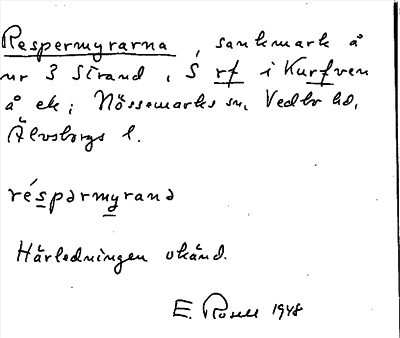 Respermyrarna, sankmark å
nr 3 Strand, S rf i Kurfven
å ek; Nössemarks sn, Vedbo hd,
Älvsborgs l.
réspərmyrənə
Härledningen okänd.
E. Rosell 1948